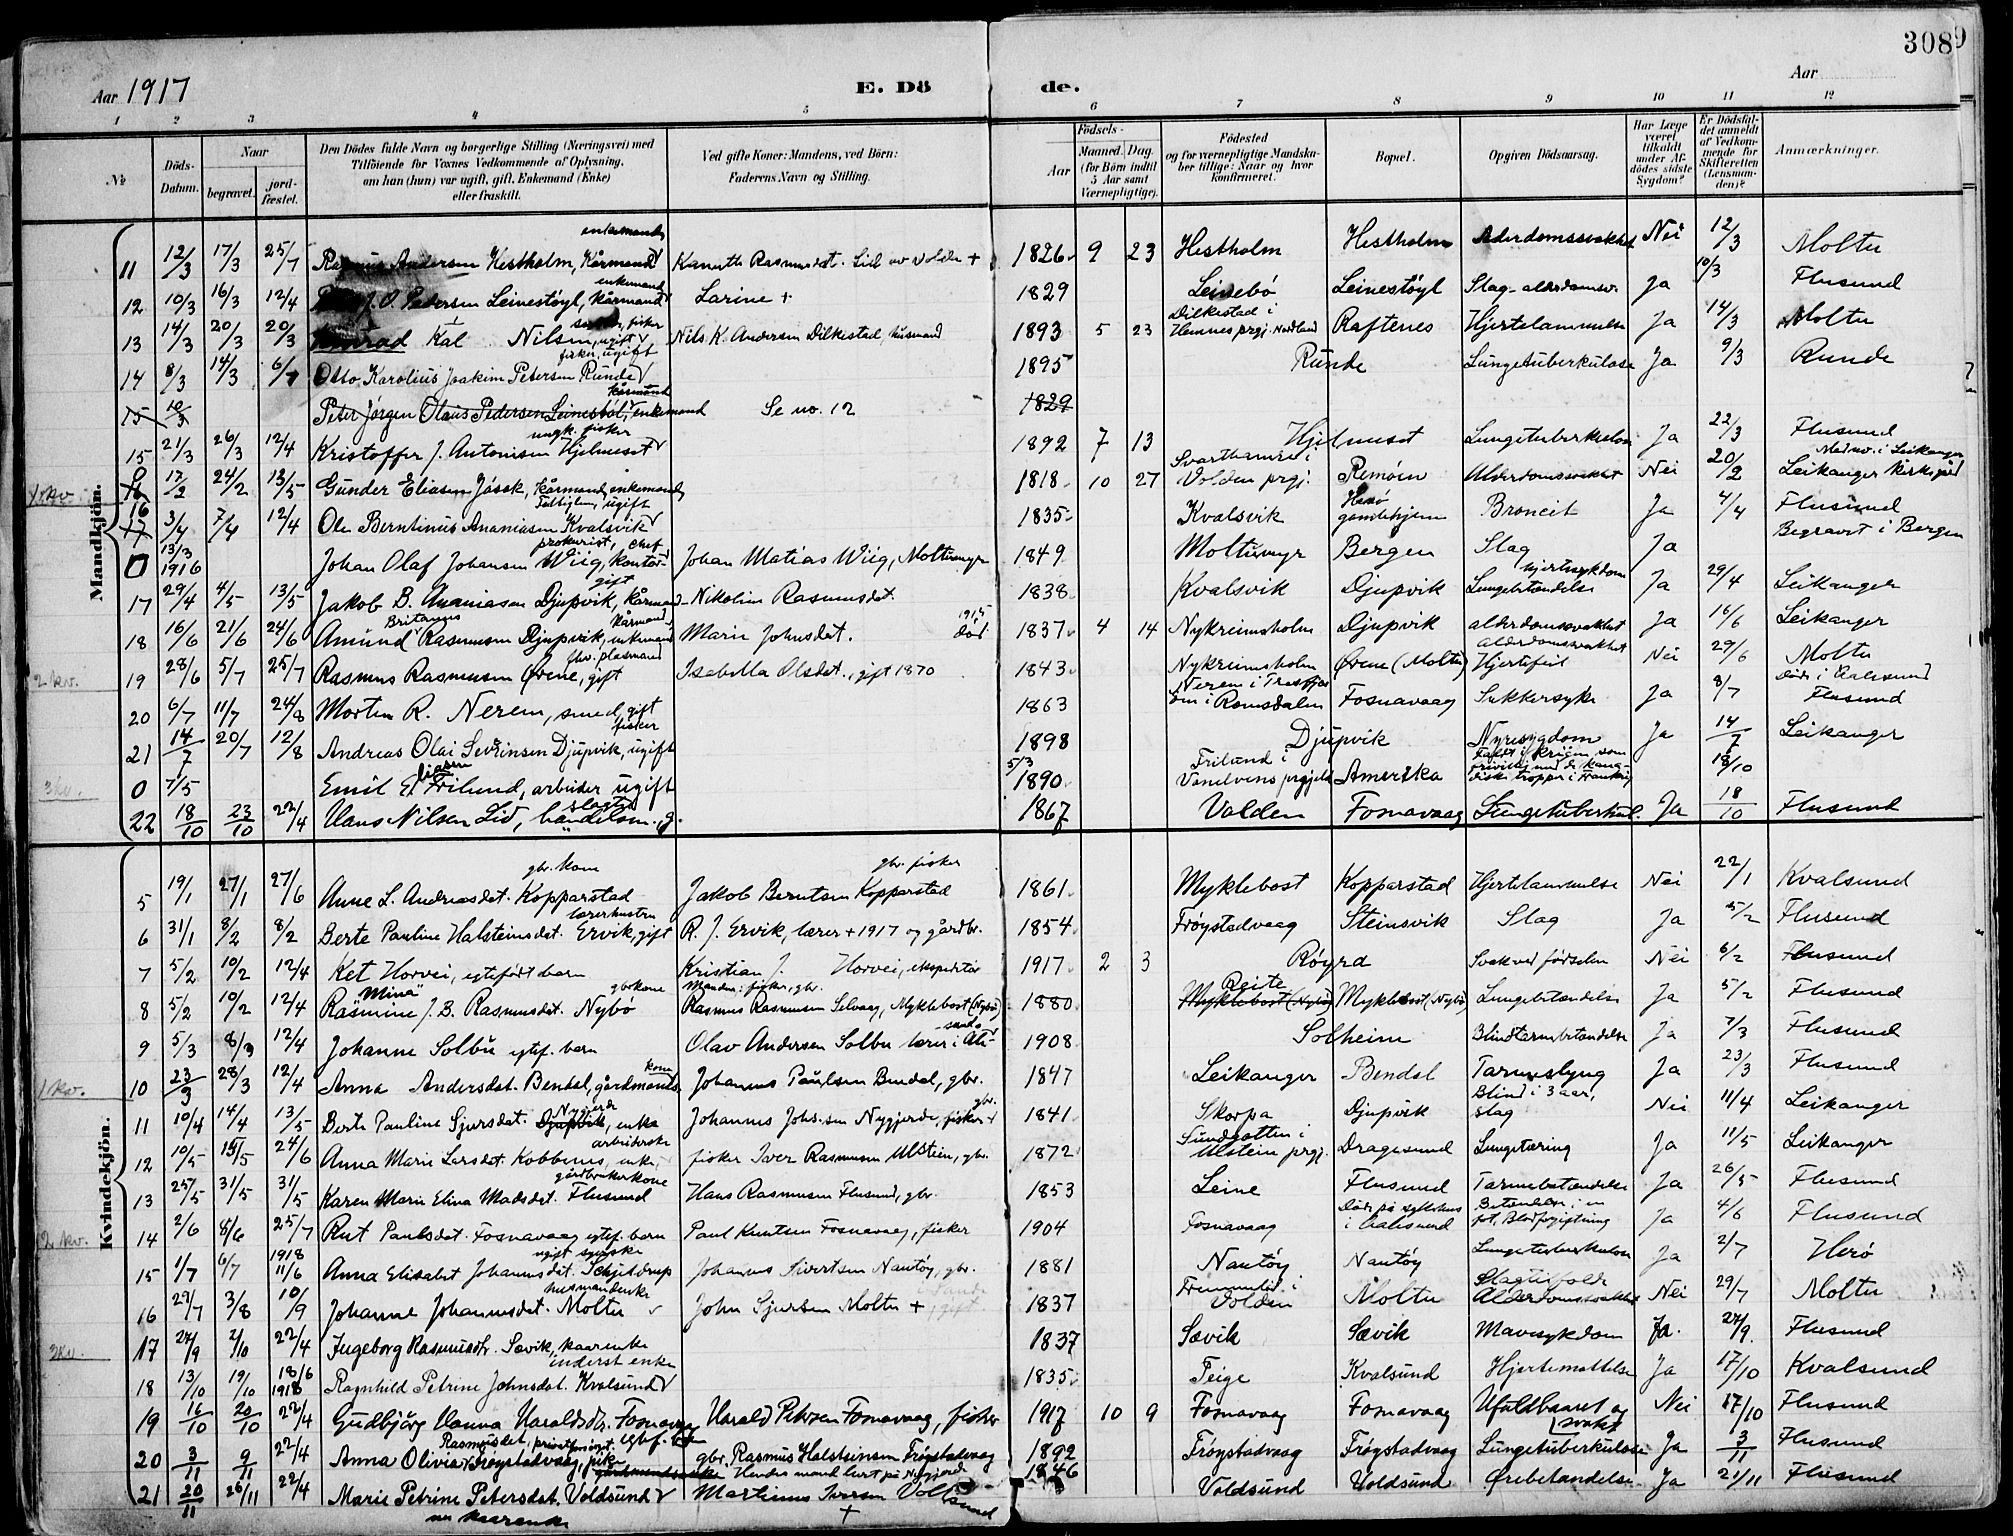 308
Aar 1917 E. Döde. Aar
1 2 3 4 5 6 7 8 9 10 11 12
№ Döds-Datum. Naar begravet. jord-fæstet. Den Dödes fulde Navn og borgerlige Stilling (Næringsvei) med Tilföiende for Voxnes Vedkommende af Oplysning, om han (hun) var ugift, gift, Enkemand (Enke) eller fraskilt. Ved gifte Koner: Mandens, ved Börn: Faderens Navn og Stilling. Födsels- Aar Maaned. Dag. (for Börn indtil 5 Aar samt Værnepligtige). Födested og for værnepligtige Mandskaber tillige: Naar og hvor konfirmeret. Bopæl. Opgiven Dödsaarsag. Har Læge været tilkaldt under Afdödes sidste Sygdom? Er Dödsfaldet anmeldt af Vedkommende for Skifteretten (Lensmanden)? Anmærkninger.
Mandkjön.
11 12/3 17/3 25/7 Andersen Hestholm, Kårmand enkemand Rasmusdat. Lid av Volden + 1826 9 23 Hestholm Hestholm Alderdomssvakhet Nei 12/3 Moltu
12 10/3 16/3 12/4 O. Pedersen Leinestøyl, kårmand enkemand Larine + 1829 Leinebø Leinestøyl Slag - alderdomsv. Ja 10/3 Flusund
13 14/3 20/3 20/3 Konrad Kal Nilsen, ugift fisker Nils K. Andersen Dilkestad husmand 1893 5 23 Dilkestad i Hemnes prgj. Nordland Raftenes Hjertelammelse Ja 14/3 Moltu
14 8/3 14/3 6/7 Otto Karolius Joakim Petersen Runde fisker, ugift 1895 Runde Lungetuberkulose Ja 9/3 Runde
15 10/3 Peter Jørgen Olaus Pedersen Leinestøl, enkemand kårmand Se no. 12 1829
15 21/3 26/3 12/4 Kristoffer J. Antonisen Hjelmeset ungk. fisker 1892 7 13 Hjelmeset Lungetuberkulose Ja 22/3 Flusund
1 kv. 17/2 24/2 13/5 Gunder Eliasen Jøsok, kårmand, enkemand 1818 10 27 Svarthamren i Volden prgj. Remøen Alderdomssvakhet Nei 20/2 Leikanger kirkegård
16 3/4 7/4 12/4 Ole Berntinus Ananiasen Kvalsvik Fattiglem, ugift 1835 Kvalsvik Herø gamlehjem Broncit Ja 4/4 Flusund
0 13/3 1916 Johan Olaf Johansen Wiig, kontor- prokurist, chef Johan Matias Wiig, Moltumyr 1849 Moltumyr Bergen Slag Ja Begravet i Bergen
17 29/4 4/5 13/5 Jakob B. Ananiasen Djupvik, kårmand gift Nikoline Rasmusdat. 1838 Kvalsvik Djupvik Lungebetændelse hjertesykdom Ja 29/4 Leikanger
18 16/6 21/6 24/6 Amund Britanus Rasmussen Djupvik, enkemand kårmand Marie Johnsdat. død 1915 1837 4 14 Nykreimsholm Djupvik alderdomssvakhet Ja 16/6 Leikanger
2 kv. 19 28/6 5/7 25/7 Rasmus Rasmussen Ørene, gift fhv. plasmand Isabella Olsdat., gift 1870 1843 Nykreimsholm Ørene (Moltu) alderdomssvakhet Hjertefeil Nei 29/6 Moltu
20 6/7 11/7 24/8 Morten R. Nerem, smed, gift 1863 Nerem i Romsdalen Fosnavaag Sukkersyke Ja 8/7 Døde i Aalesund Flusund
21 14/7 20/7 12/8 Andreas Olai Severinsen Djupvik, ugift fisker 1898 Djupvik Nyresygdom Ja 14/7 Leikanger
3 kv. 0 7/5 Emil Eliasen Frilund, arbeider ugift 5/3 1890 Frilund i Vanelvens prgjeld Amerika Faldt i krigen som frivillig med de kanadiske tropper i Frankrig 18/10
22 18/10 23/10 22/4 Hans Nilsen Lid, handelsm. g. 1867 Volden Fosnavaag Lungetuberkul. Ja 18/10 Flusund
Kvindekjön.
5 19/1 27/1 27/6 Anne L. Andreasdat. Kopparstad gbr. kone Jakob Berntsen Kopparstad gbr. fisker 1861 Myklebost Kopparstad Hjertelammelse Nei 22/1 Kvalsund
6 31/1 8/2 8/2 Berte Pauline Halsteinsdat. Ervik, gift lærerhustru R. J. Ervik, lærer + 1917 og gårdbr. 1854 Frøystadvaag Steinsvik Slag Ja 5/2 Flusund
7 5/2 10/2 12/4 Ket Horvei, egtefødt barn Kristian J. Horvei, ekspeditør 1917 2 3 Røyra Svak ved fødselen Nei 6/2 Flusund
8 5/2 10/2 12/4 Rasmine "Mina" J. B. Rasmusdat. Nybø gbrkone Manden: fisker, gbr. Rasmus Rasmussen Selvaag, Myklebost (Nybø) 1880 Reite Myklebost (Nybø) Myklebost (Nybø) Lungebetændelse Ja 5/2 Flusund
9 5/3 8/3 12/4 Johanne Solbu egtef. barn Olav Andersen Solbu lærer i Ale- sund 1908 Solheim Blindtarmbetændelse Ja 7/3 Flusund
1 kv. 10 23/3 28/3 12/4 Anna Andersdat. Bendal, gårdmands- kone Johannes Paulsen Bendal, gbr. 1847 Leikanger Bendal Tarmslyng Ja 23/3 Flusund
11 10/4 14/4 13/5 Berte Pauline Sjursdat. Djupvik Nygjerde, enke Johannes Johs.sen Nygjerde, fisker + gbr. 1841 Skorpa Djupvik Blind i 3 aar, slag Nei 11/4 Leikanger
12 10/5 15/5 24/6 Anna Marie Larsdat. Kobbenes, enke, arbeiderske fisker Iver Rasmussen Ulstein, gbr. 1872 Sundgotten i Ulstein prgj. Dragesund Lungetæring Ja 11/5 Leikanger
13 25/5 31/5 31/5 Karen Marie Elina Madsdat. Flusund gårdbrukerkone Hans Rasmussen Flusund, gbr. 1853 Leine Flusund Tarmbetændelse Ja 26/5 Flusund
2 kv. 14 2/6 8/6 25/7 Rut Paulsdat. Fosnavaag egtef. barn Paul Knutsen Fosnavaag, fisker 1904 Fosnavaag Døde på sykehus i Aalesund Betændelse i en fot. Blodforgiftning Ja 4/6 Flusund
15 1/7 6/7 1918 11/6 Anna Elisabet Johannesdat. Schjelderup ugift syerske Johannes Sivertsen Nautøy, gbr. 1881 Nautøy Nautøy Lungetuberkulose Ja 2/7 Herø
16 29/7 3/8 10/9 Johanne Johannesdat. Moltu husmandsenke John Sjursen Moltu + 1837 Fremmelid i Volden Moltu Slagtilfælde Alderdomssvakhet Nei 29/7 Moltu
3 kv. 17 24/9 2/10 22/4 Ingeborg Rasmusdtr. Sævik, kaarenke 1837 Sævik Sævik Mavesykdom Ja. 24/9. Flusund
18 13/10 19/10 18/6 1918 Ragnhild Petrine Johnsdat. Kvalsund inderst enke 1835 Teige Kvalsund Hjertemattelse Ja 17/10 Kvalsund
19 16/10 20/10 22/4 Gudbjørg Hanna Haraldsdtr. Fosnavaag egtef. Harald Petersen Fosnavaag, fisker 1917 10 9 Fosnavaag Fosnavaag Ufuldbaaret og svakt Nei 17/10 Flusund
20 3/11 9/11 22/4 Anna Olivia Rasmusdat. Frøystadvaag, pike gbr. Rasmus Halsteinsen Frøystadvaag 1892 Frøystadvaag Frøystadvaag Lungetuberkulose Ja 3/11 Flusund
21 20/11 26/11 22/4 Marie Petrine Petersdat. Voldsund kaarenke Martinus Iversen Voldsund + 1846 Voldsund Voldsund Ørebetændelse Ja 21/11 Flusund